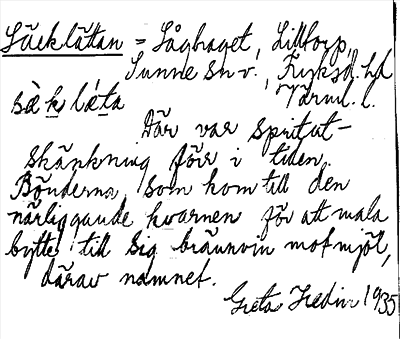 Säcklättan = Låghaget, Lilltorp,
Sunne sn v., Fryksd. hd
Värml. l.
sä̀k læ̀ta
Där var spritut-
skänkning förr i tiden.
Bönderna som kom till den
närliggande kvarnen för att mala
bytte till sig brännvin mot mjöl,
därav namnet.
Greta Hedin 1935